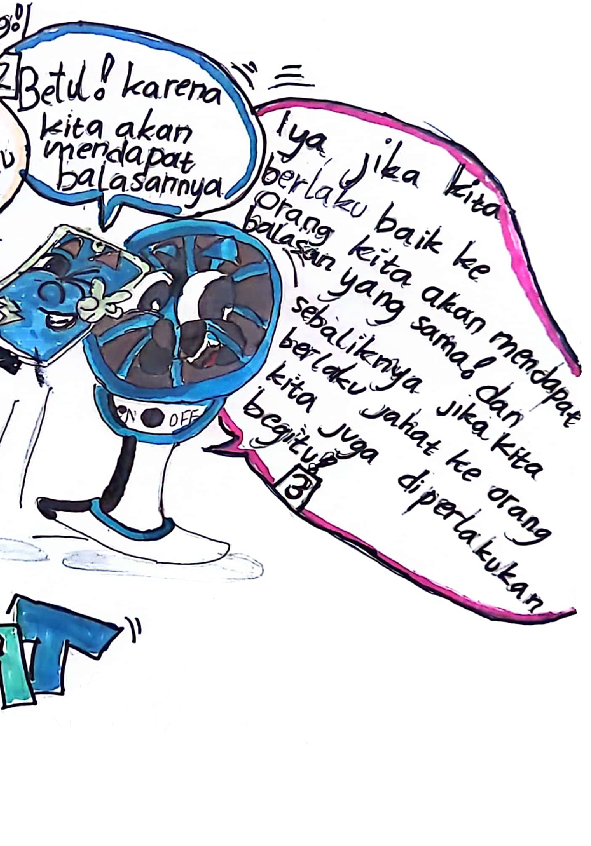 g!
2
Betul! karena
kita akan
mendapat
balasannya
u
Iya, jika kita
berlaku baik ke
orang kita akan mendapat
balasan yang sama! dan
sebaliknya jika kita
berlaku jahat ke orang
kita juga diperlakukan
begitu!
3
ON OFF
IT